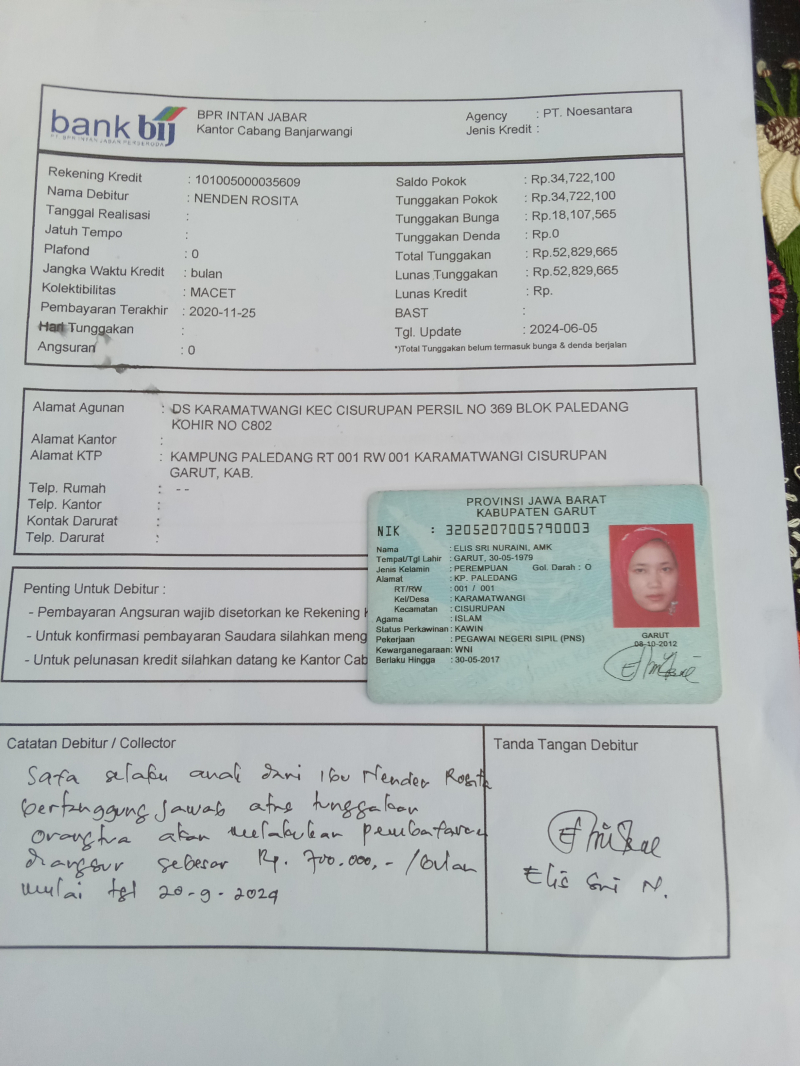 bank bij
PT. BPR INTAN JABAR PERSERODA
BPR INTAN JABAR
Kantor Cabang Banjarwangi
Agency : PT. Noesantara
Jenis Kredit :
Rekening Kredit : 101005000035609
Nama Debitur : NENDEN ROSITA
Tanggal Realisasi :
Jatuh Tempo :
Plafond : 0
Jangka Waktu Kredit : bulan
Kolektibilitas : MACET
Pembayaran Terakhir : 2020-11-25
Hari Tunggakan :
Angsuran : 0
Saldo Pokok : Rp.34,722,100
Tunggakan Pokok : Rp.34,722,100
Tunggakan Bunga : Rp.18,107,565
Tunggakan Denda : Rp.0
Total Tunggakan : Rp.52,829,665
Lunas Tunggakan : Rp.52,829,665
Lunas Kredit : Rp.
BAST :
Tgl. Update : 2024-06-05
*)Total Tunggakan belum termasuk bunga & denda berjalan
Alamat Agunan : DS KARAMATWANGI KEC CISURUPAN PERSIL NO 369 BLOK PALEDANG
KOHIR NO C802
Alamat Kantor :
Alamat KTP : KAMPUNG PALEDANG RT 001 RW 001 KARAMATWANGI CISURUPAN
GARUT, KAB.
Telp. Rumah : --
Telp. Kantor :
Kontak Darurat :
Telp. Darurat :
Penting Untuk Debitur :
- Pembayaran Angsuran wajib disetorkan ke Rekening
- Untuk konfirmasi pembayaran Saudara silahkan meng
- Untuk pelunasan kredit silahkan datang ke Kantor Cab
PROVINSI JAWA BARAT
KABUPATEN GARUT
NIK : 3205207005790003
Nama : ELIS SRI NURAINI, AMK
Tempat/Tgl Lahir : GARUT, 30-05-1979
Jenis Kelamin : PEREMPUAN Gol. Darah : O
Alamat : KP. PALEDANG
RT/RW : 001 / 001
Kel/Desa : KARAMATWANGI
Kecamatan : CISURUPAN
Agama : ISLAM
Status Perkawinan : KAWIN
Pekerjaan : PEGAWAI NEGERI SIPIL (PNS)
Kewarganegaraan : WNI
Berlaku Hingga : 30-05-2017
GARUT
08-10-2012
Catatan Debitur / Collector
Saya selaku anak dari Ibu Nenden Rosita
bertanggung jawab atas tunggakan
orangtua akan melakukan pembayaran
diangsur sebesar Rp. 700.000,- /bulan
mulai tgl 20-9-2024
Tanda Tangan Debitur
Elis Sri N.